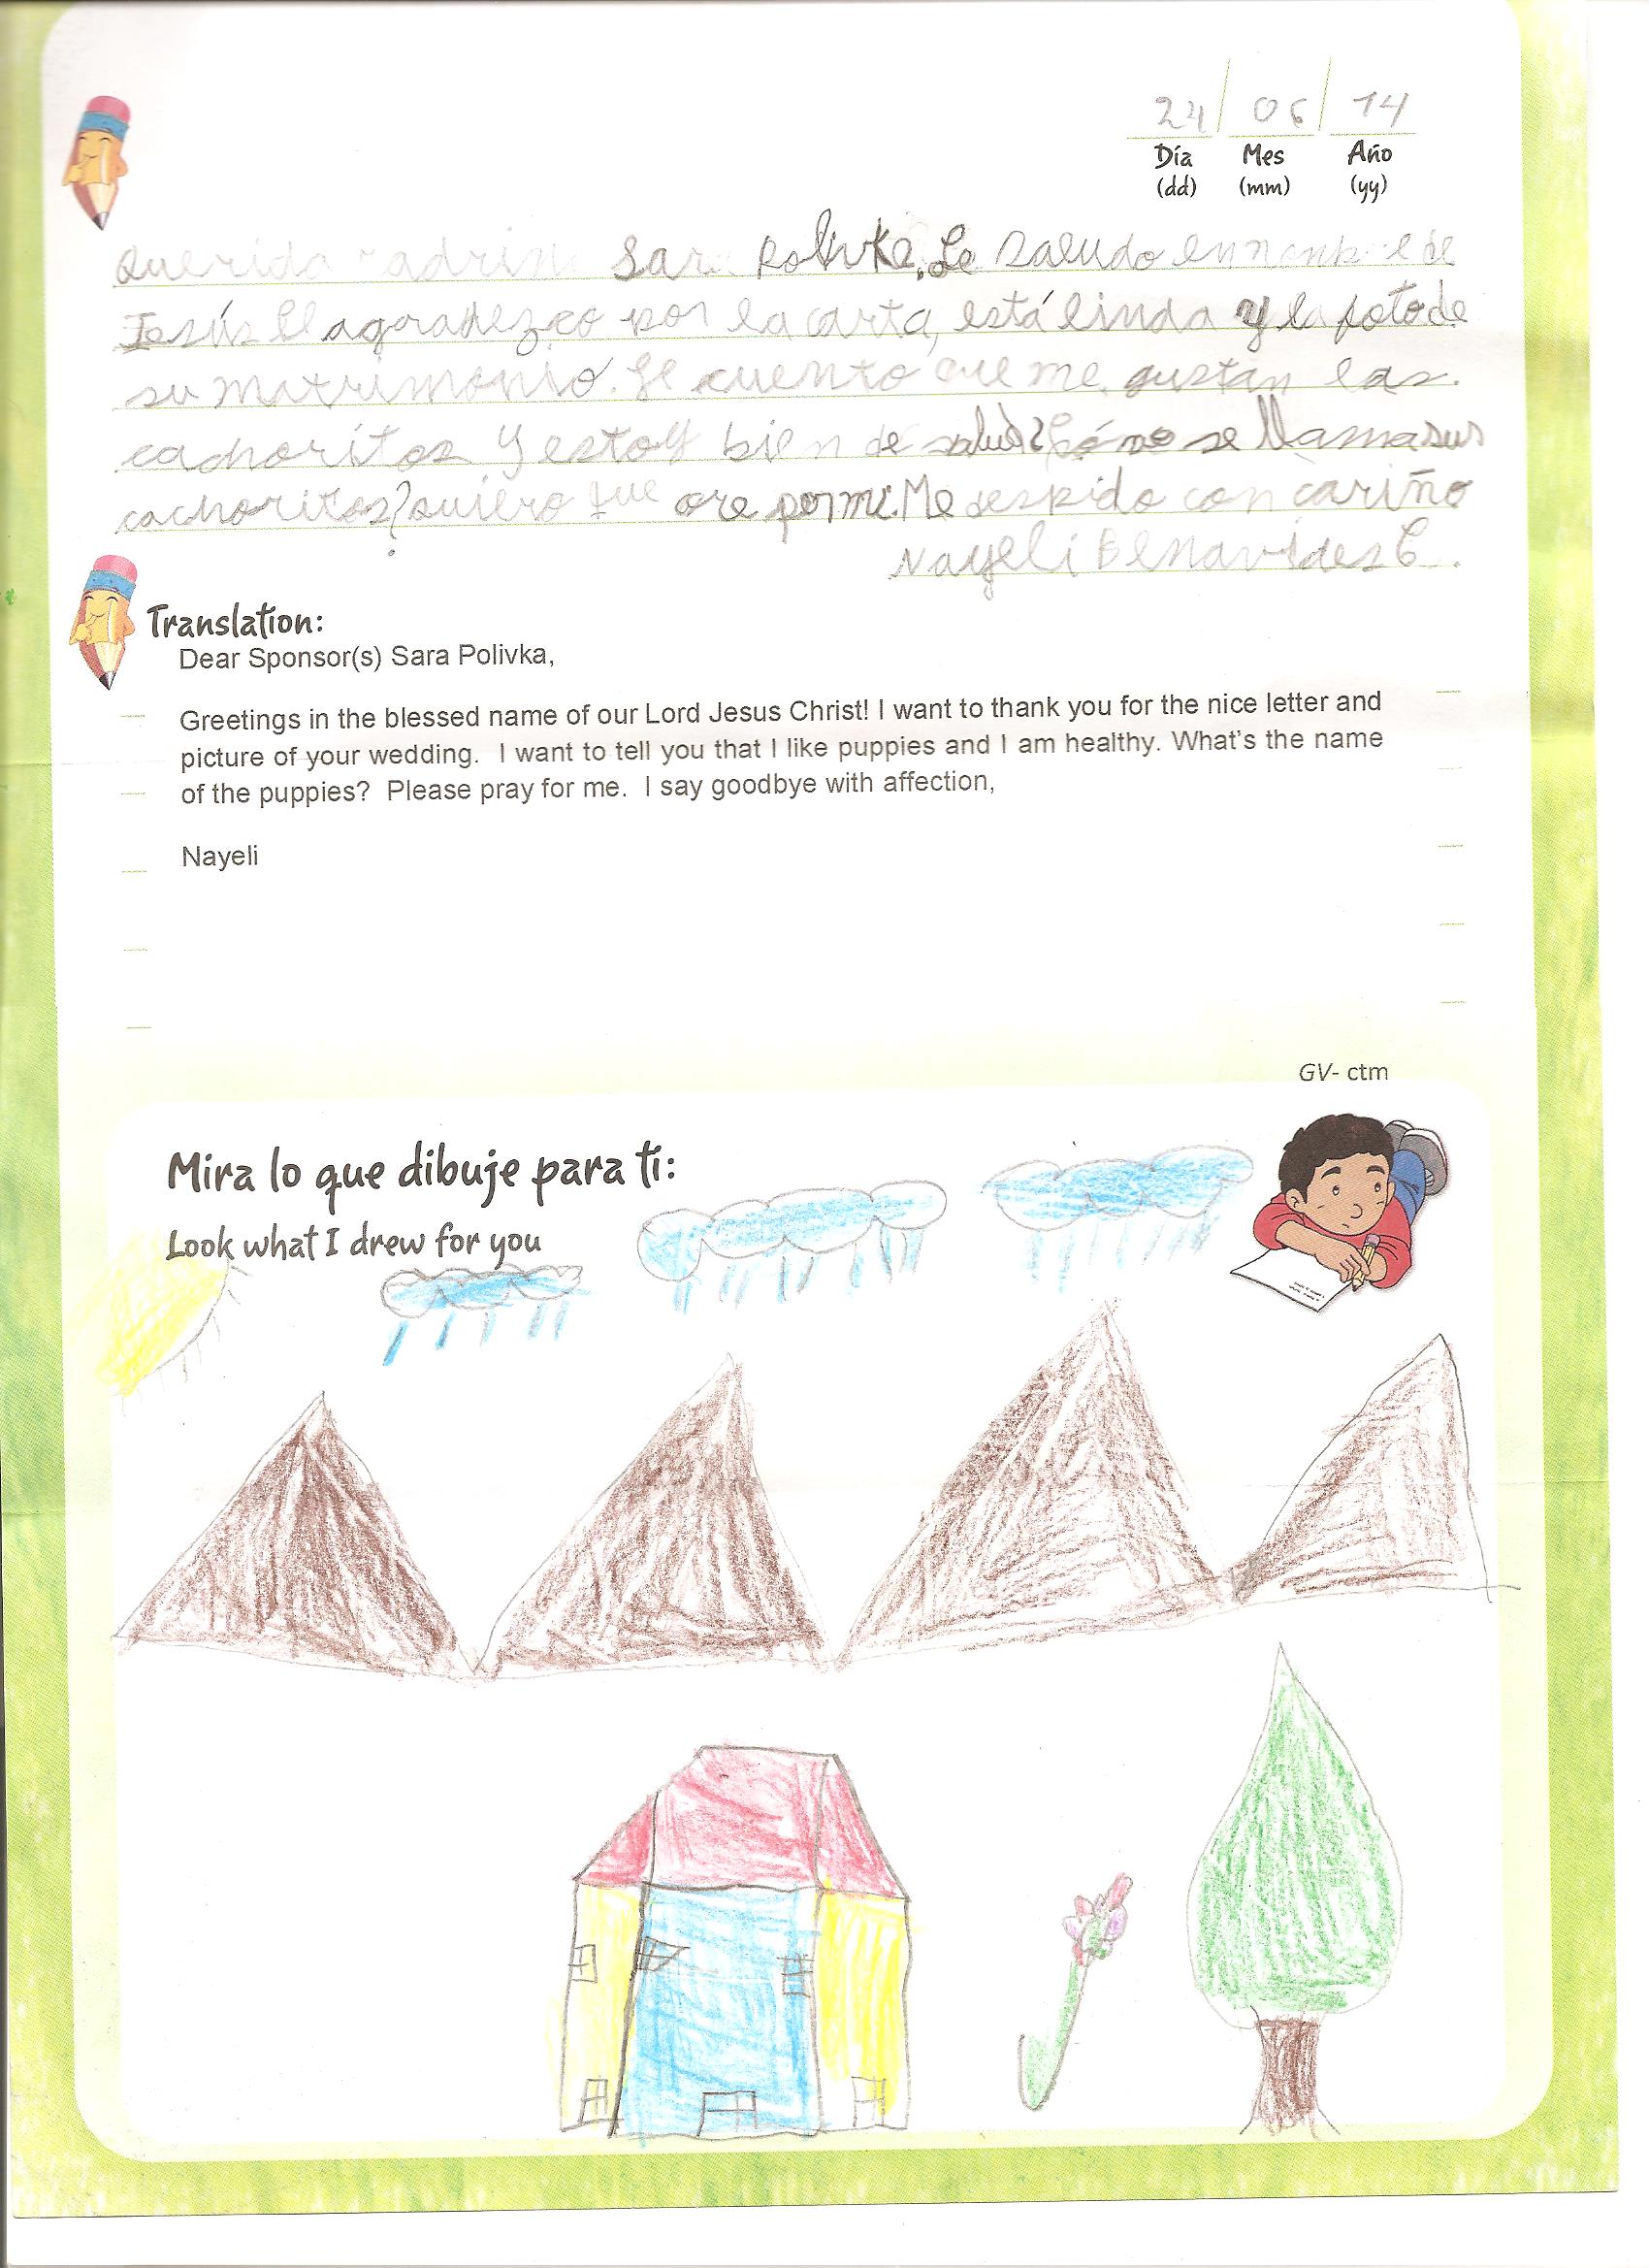 24 / 06 / 14
Día Mes Año
(dd) (mm) (yy)
Querida Sara Polivka. Le saludo en de
Jesús le agradezco por la carta, está linda y la foto de
su matrimonio. Le cuento que me gustan las.
cachoritos y estoy bien de salud ¿Cómo se llama sus
cachoritos? quiero que ore por mi. Me despido con cariño
Nayeli Benavides C.
Translation:
Dear Sponsor(s) Sara Polivka,
Greetings in the blessed name of our Lord Jesus Christ! I want to thank you for the nice letter and
picture of your wedding. I want to tell you that I like puppies and I am healthy. What's the name
of the puppies? Please pray for me. I say goodbye with affection,
Nayeli
GV- ctm
Mira lo que dibuje para ti:
Look what I drew for you